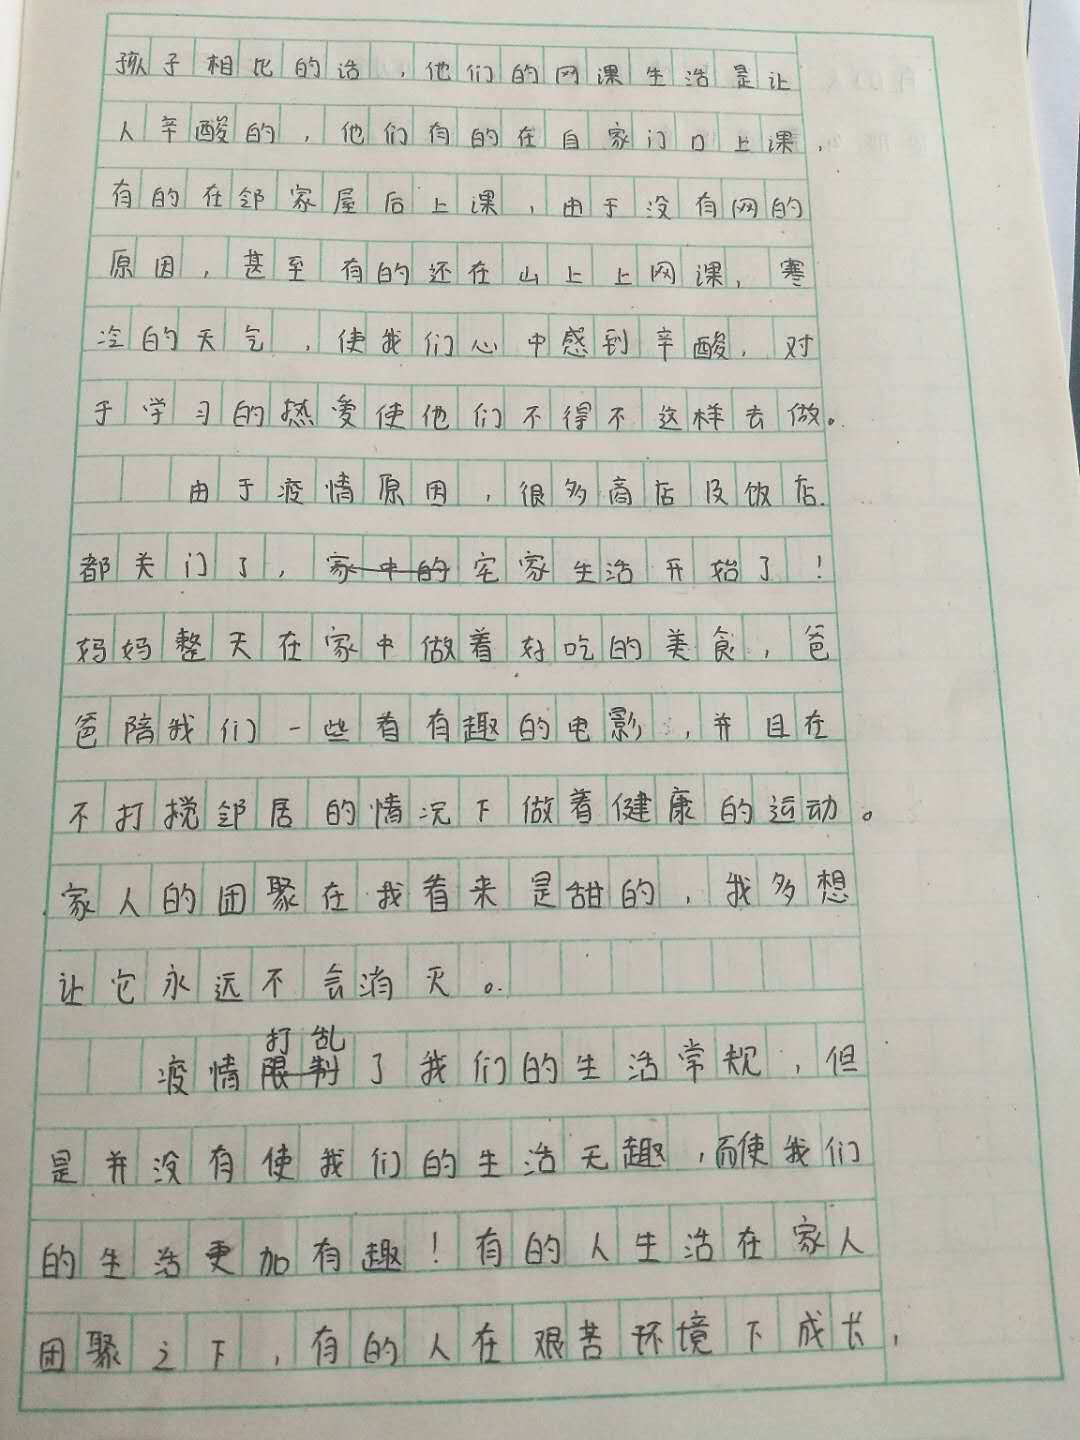 孩子相比的话,他们的网课生活是让
人辛酸的,他们有的在自家门口上课,
有的在邻家屋后上课,由于没有网的
原因,甚至有的还在山上上网课,寒
冷的天气,使我们心中感到辛酸,对
于学习的热爱使他们不得不这样去做。
由于疫情原因,很多商店及饭店
都关门了,家中的宅家生活开始了!
妈妈整天在家中做着好吃的美食,爸
爸陪我们一些看有趣的电影,并且在
不打搅邻居的情况下做着健康的运动。
家人的团聚在我看来是甜的,我多想
让它永远不会消灭。
打乱
疫情限制了我们的生活常规,但
是并没有使我们的生活无趣,而使我们
的生活更加有趣!有的人生活在家人
团聚之下,有的人在艰苦环境下成长,